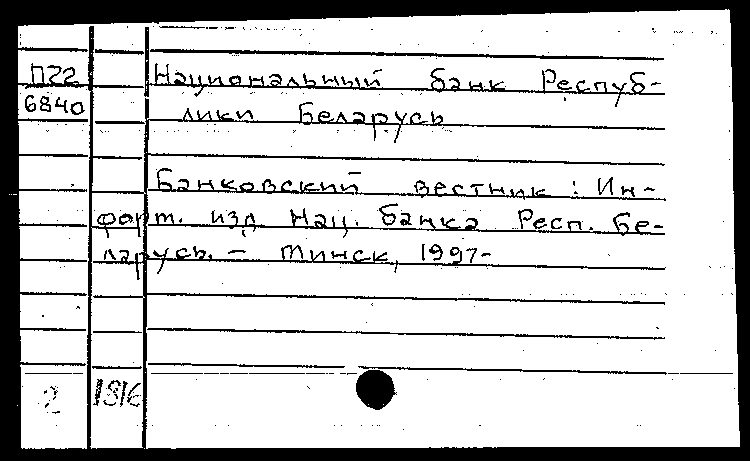 П22
6840
Национальный банк Респуб-
лики Беларусь
Банковский вестник : Ин-
форм. изд. Нац. банка Респ. Бе-
ларусь. – Минск, 1997-
2 1816